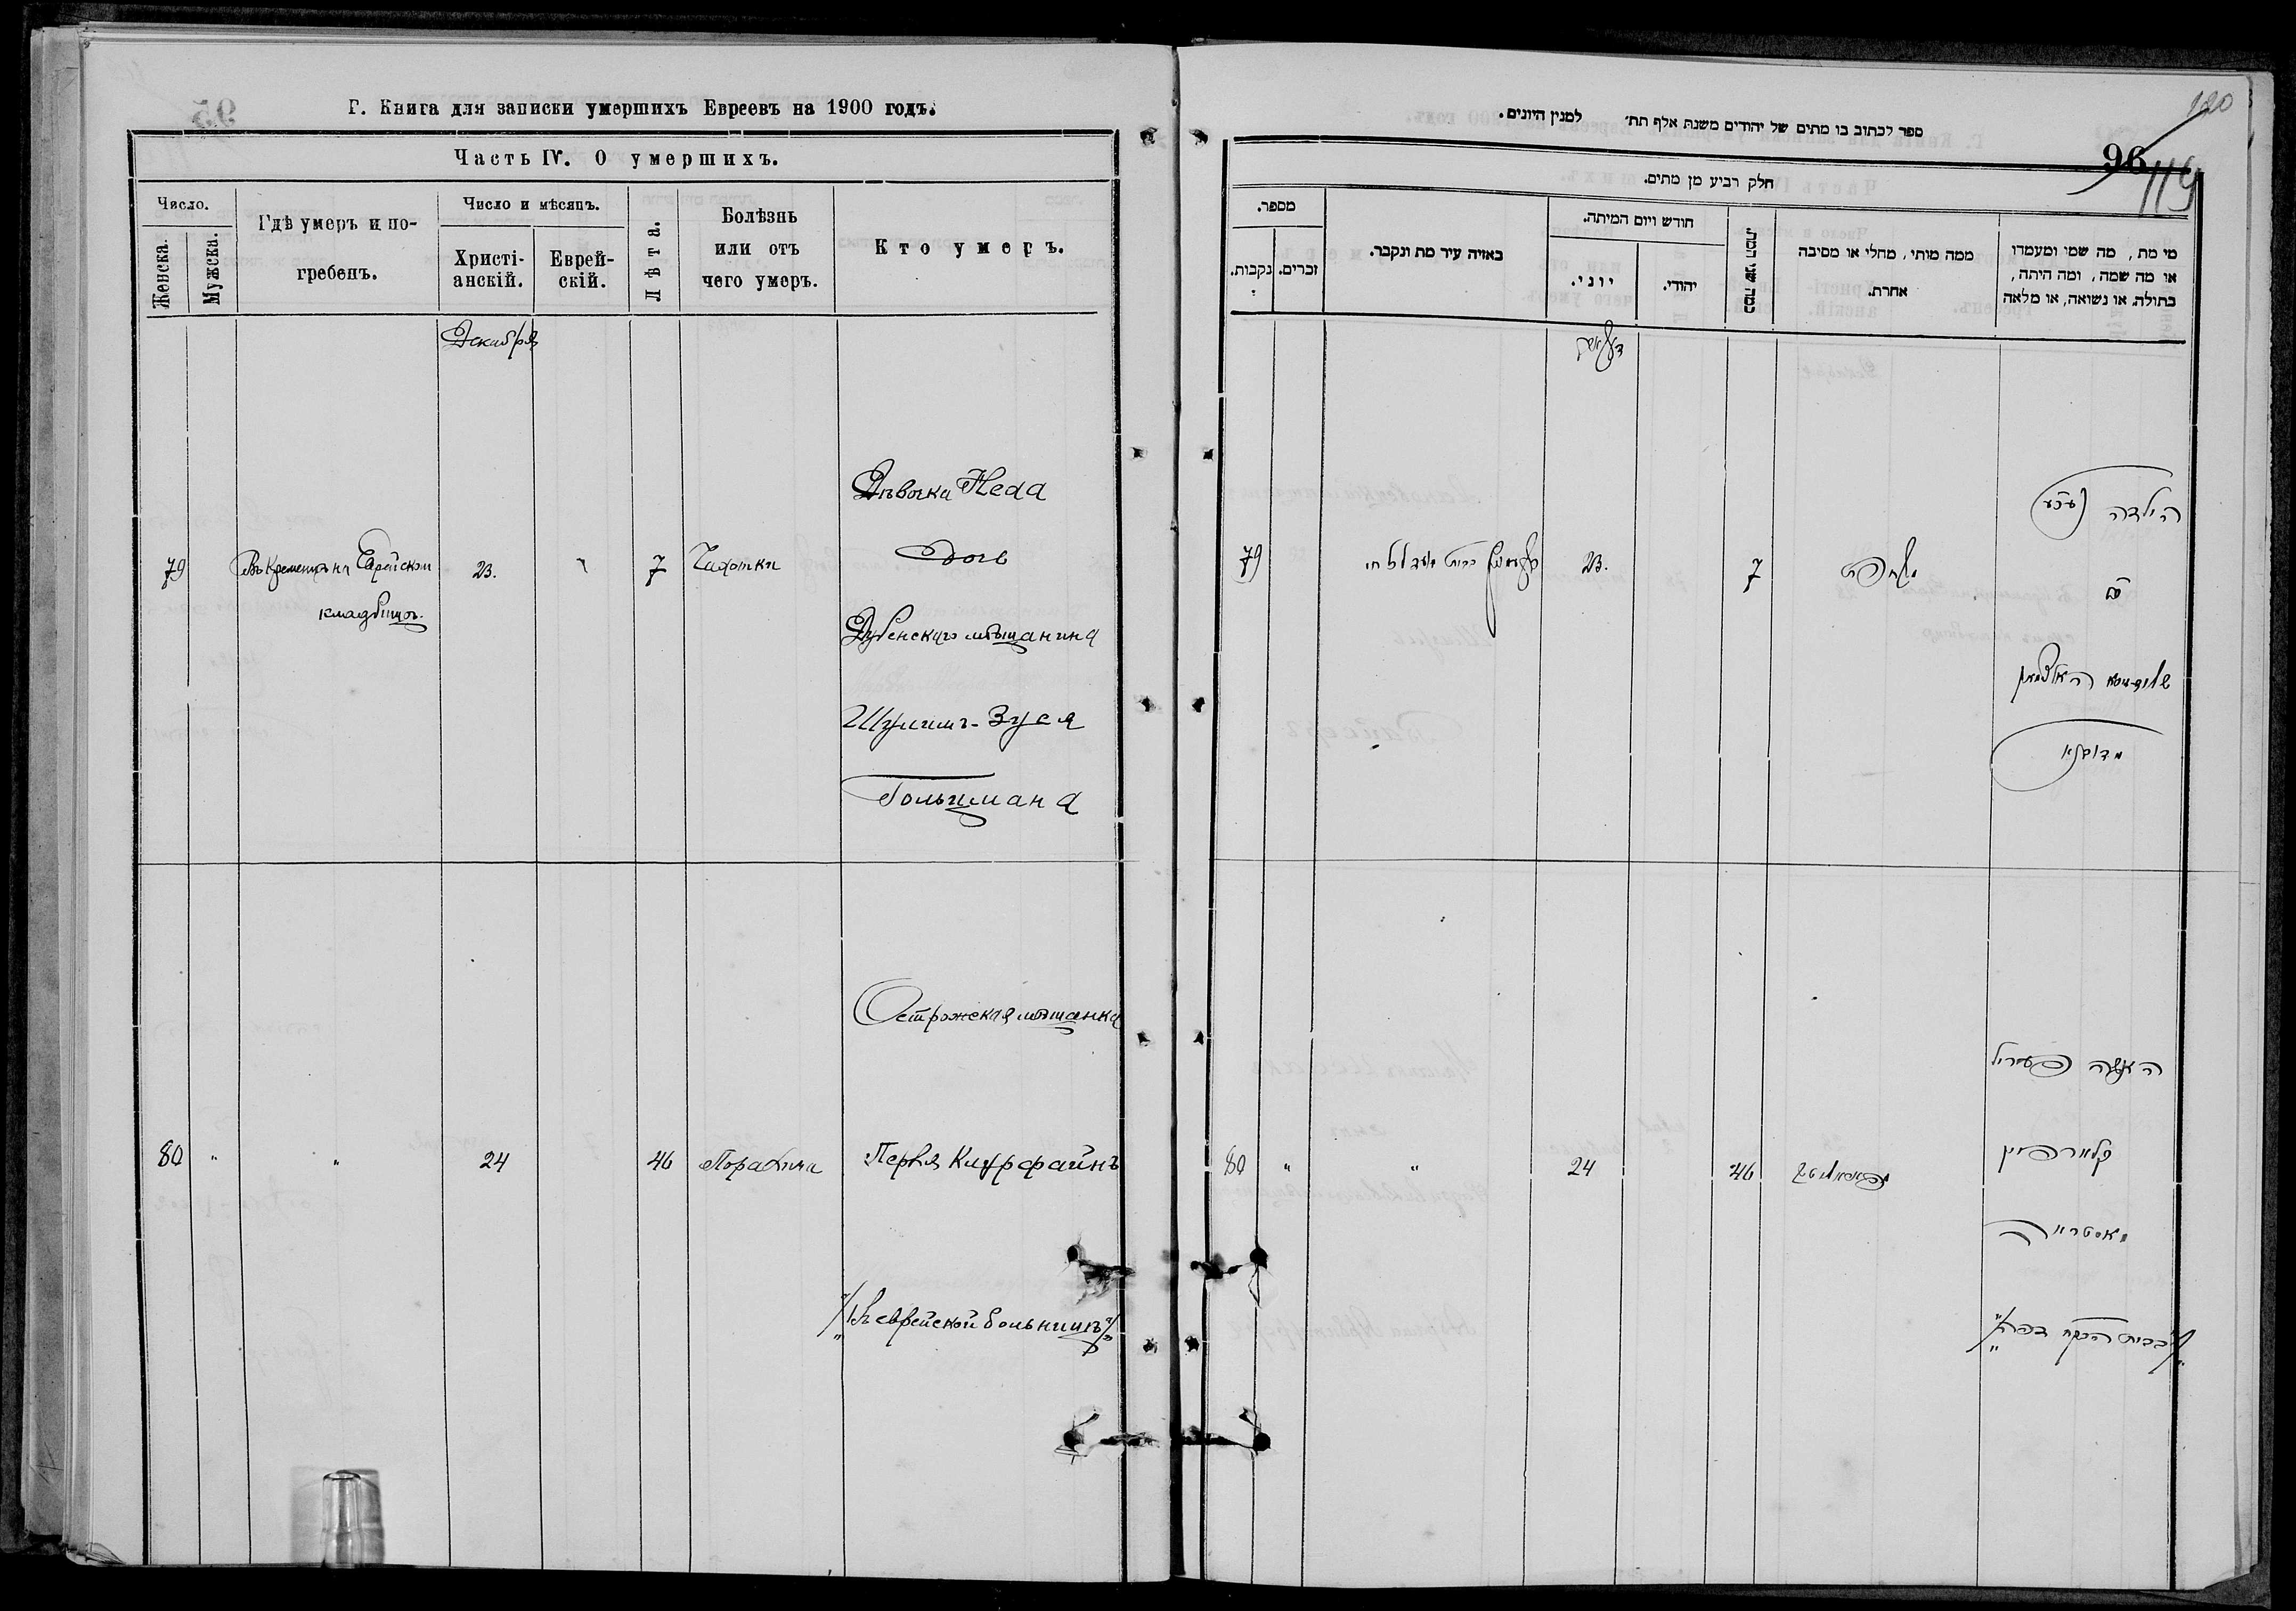 Г. Книга для записки умершихъ Евреевъ на 1900 годъ.
Часть IV. О умершихъ.
Число.
Женска.
Мужска.
Гдѣ умеръ и по-
гребенъ.
Число и мѣсяцъ.
Христі-
анскій.
Еврей-
скій.
Лѣта.
Болѣзнь
или отъ
чего умеръ.
Кто умеръ.
Декабря
79
Въ Кременцѣ на Еврейском
кладбищѣ.
23.
7
Чахотки
Дѣвочка Неса
дочь
Дубенскаго мѣщанина
Шулимъ-Зуся
Гольцмана
80
"
"
24
46
Остражская мѣщанка
Перля Клурфайнъ
/"Въ еврейской больницѣ"/
ספר לכתוב בו מתים של יהודים משנת אלף תת׳ למנין היונים.
120
96
119
חלק רביע מן מתים.
מספר.
נקבות.
זכרים.
באיזה עיר מת ונקבר.
חודש ויום המיתה.
יוני.
יהודי.
כמה שני המת.
ממה מותו, מחלי או מסיבה
אחרת.
מי מת, מה שמו ומעמדו
או מה שמה, ומה היתה,
בתולה, או נשואה, או מלאה
79
23.
7
הילדה
מדובנא
80
"
"
24
46
האשה פערל
קלורפיין